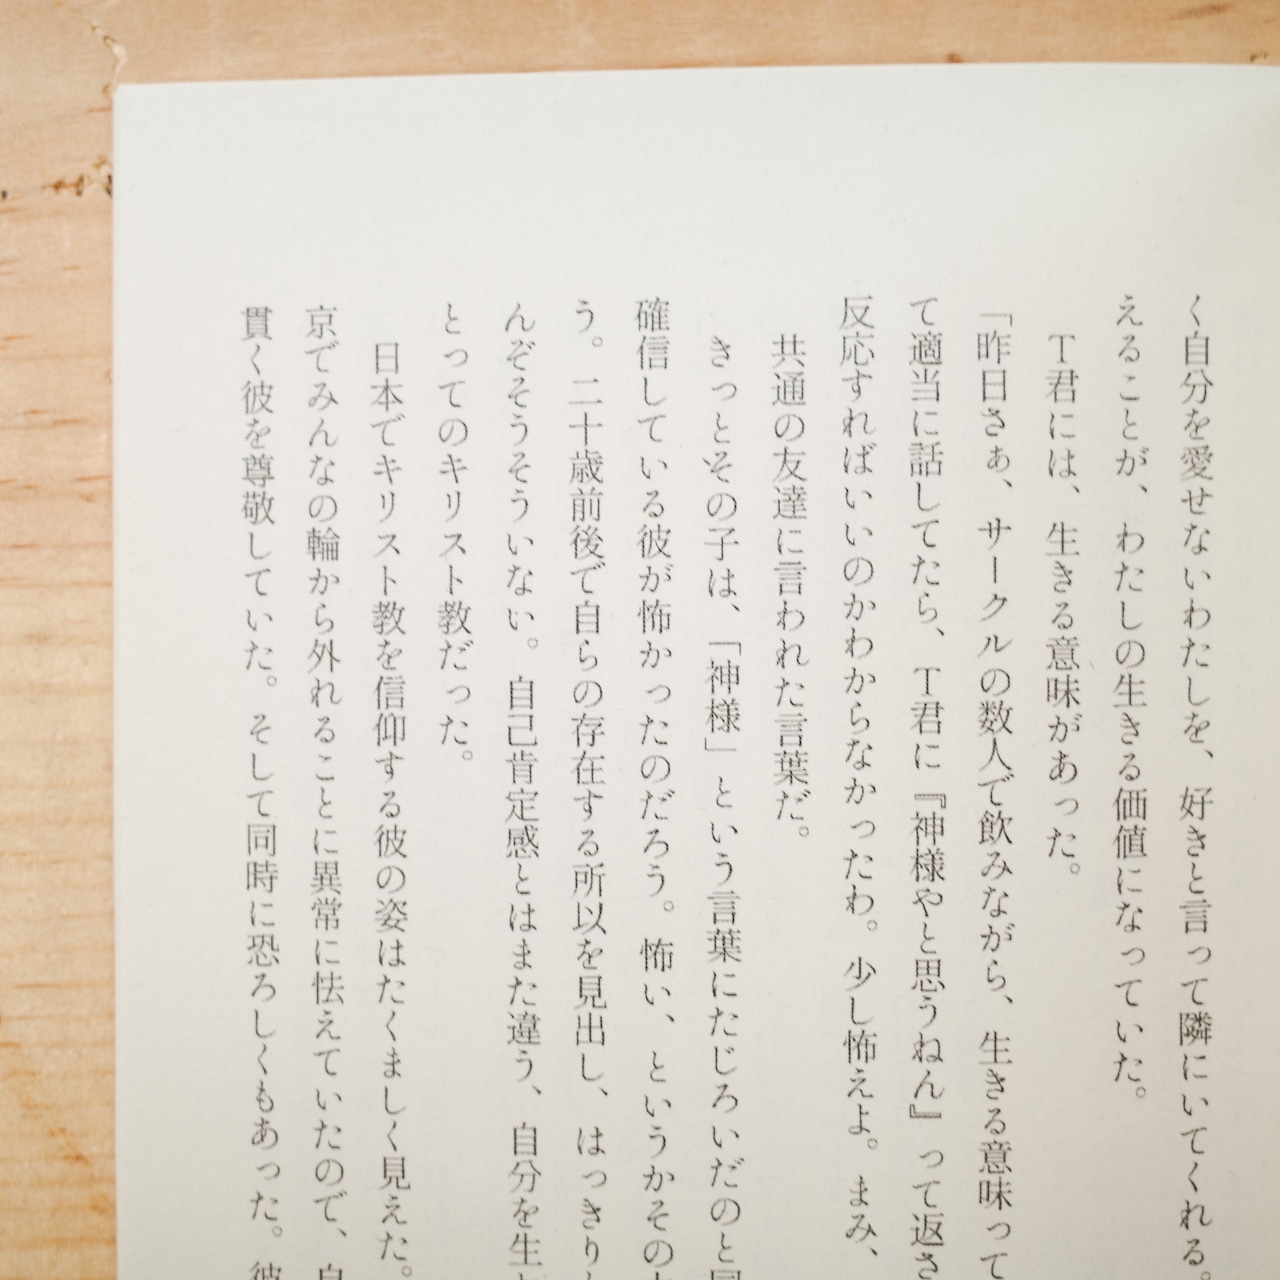 く自分を愛せないわたしを、好きと言って隣にいてくれる。
えることが、わたしの生きる価値になっていた。
T君には、生きる意味があった。
「昨日さぁ、サークルの数人で飲みながら、生きる意味って
て適当に話してたら、T君に『神様やと思うねん』って返さ
反応すればいいのかわからなかったわ。少し怖えよ。まみ、
共通の友達に言われた言葉だ。
きっとその子は、「神様」という言葉にたじろいだのと同
確信している彼が怖かったのだろう。怖い、というかその
う。二十歳前後で自らの存在する所以を見出し、はっきり
んぞそうそういない。自己肯定感とはまた違う、自分を生
とってのキリスト教だった。
日本でキリスト教を信仰する彼の姿はたくましく見えた。
京でみんなの輪から外れることに異常に怯えていたので、自
貫く彼を尊敬していた。そして同時に恐ろしくもあった。彼